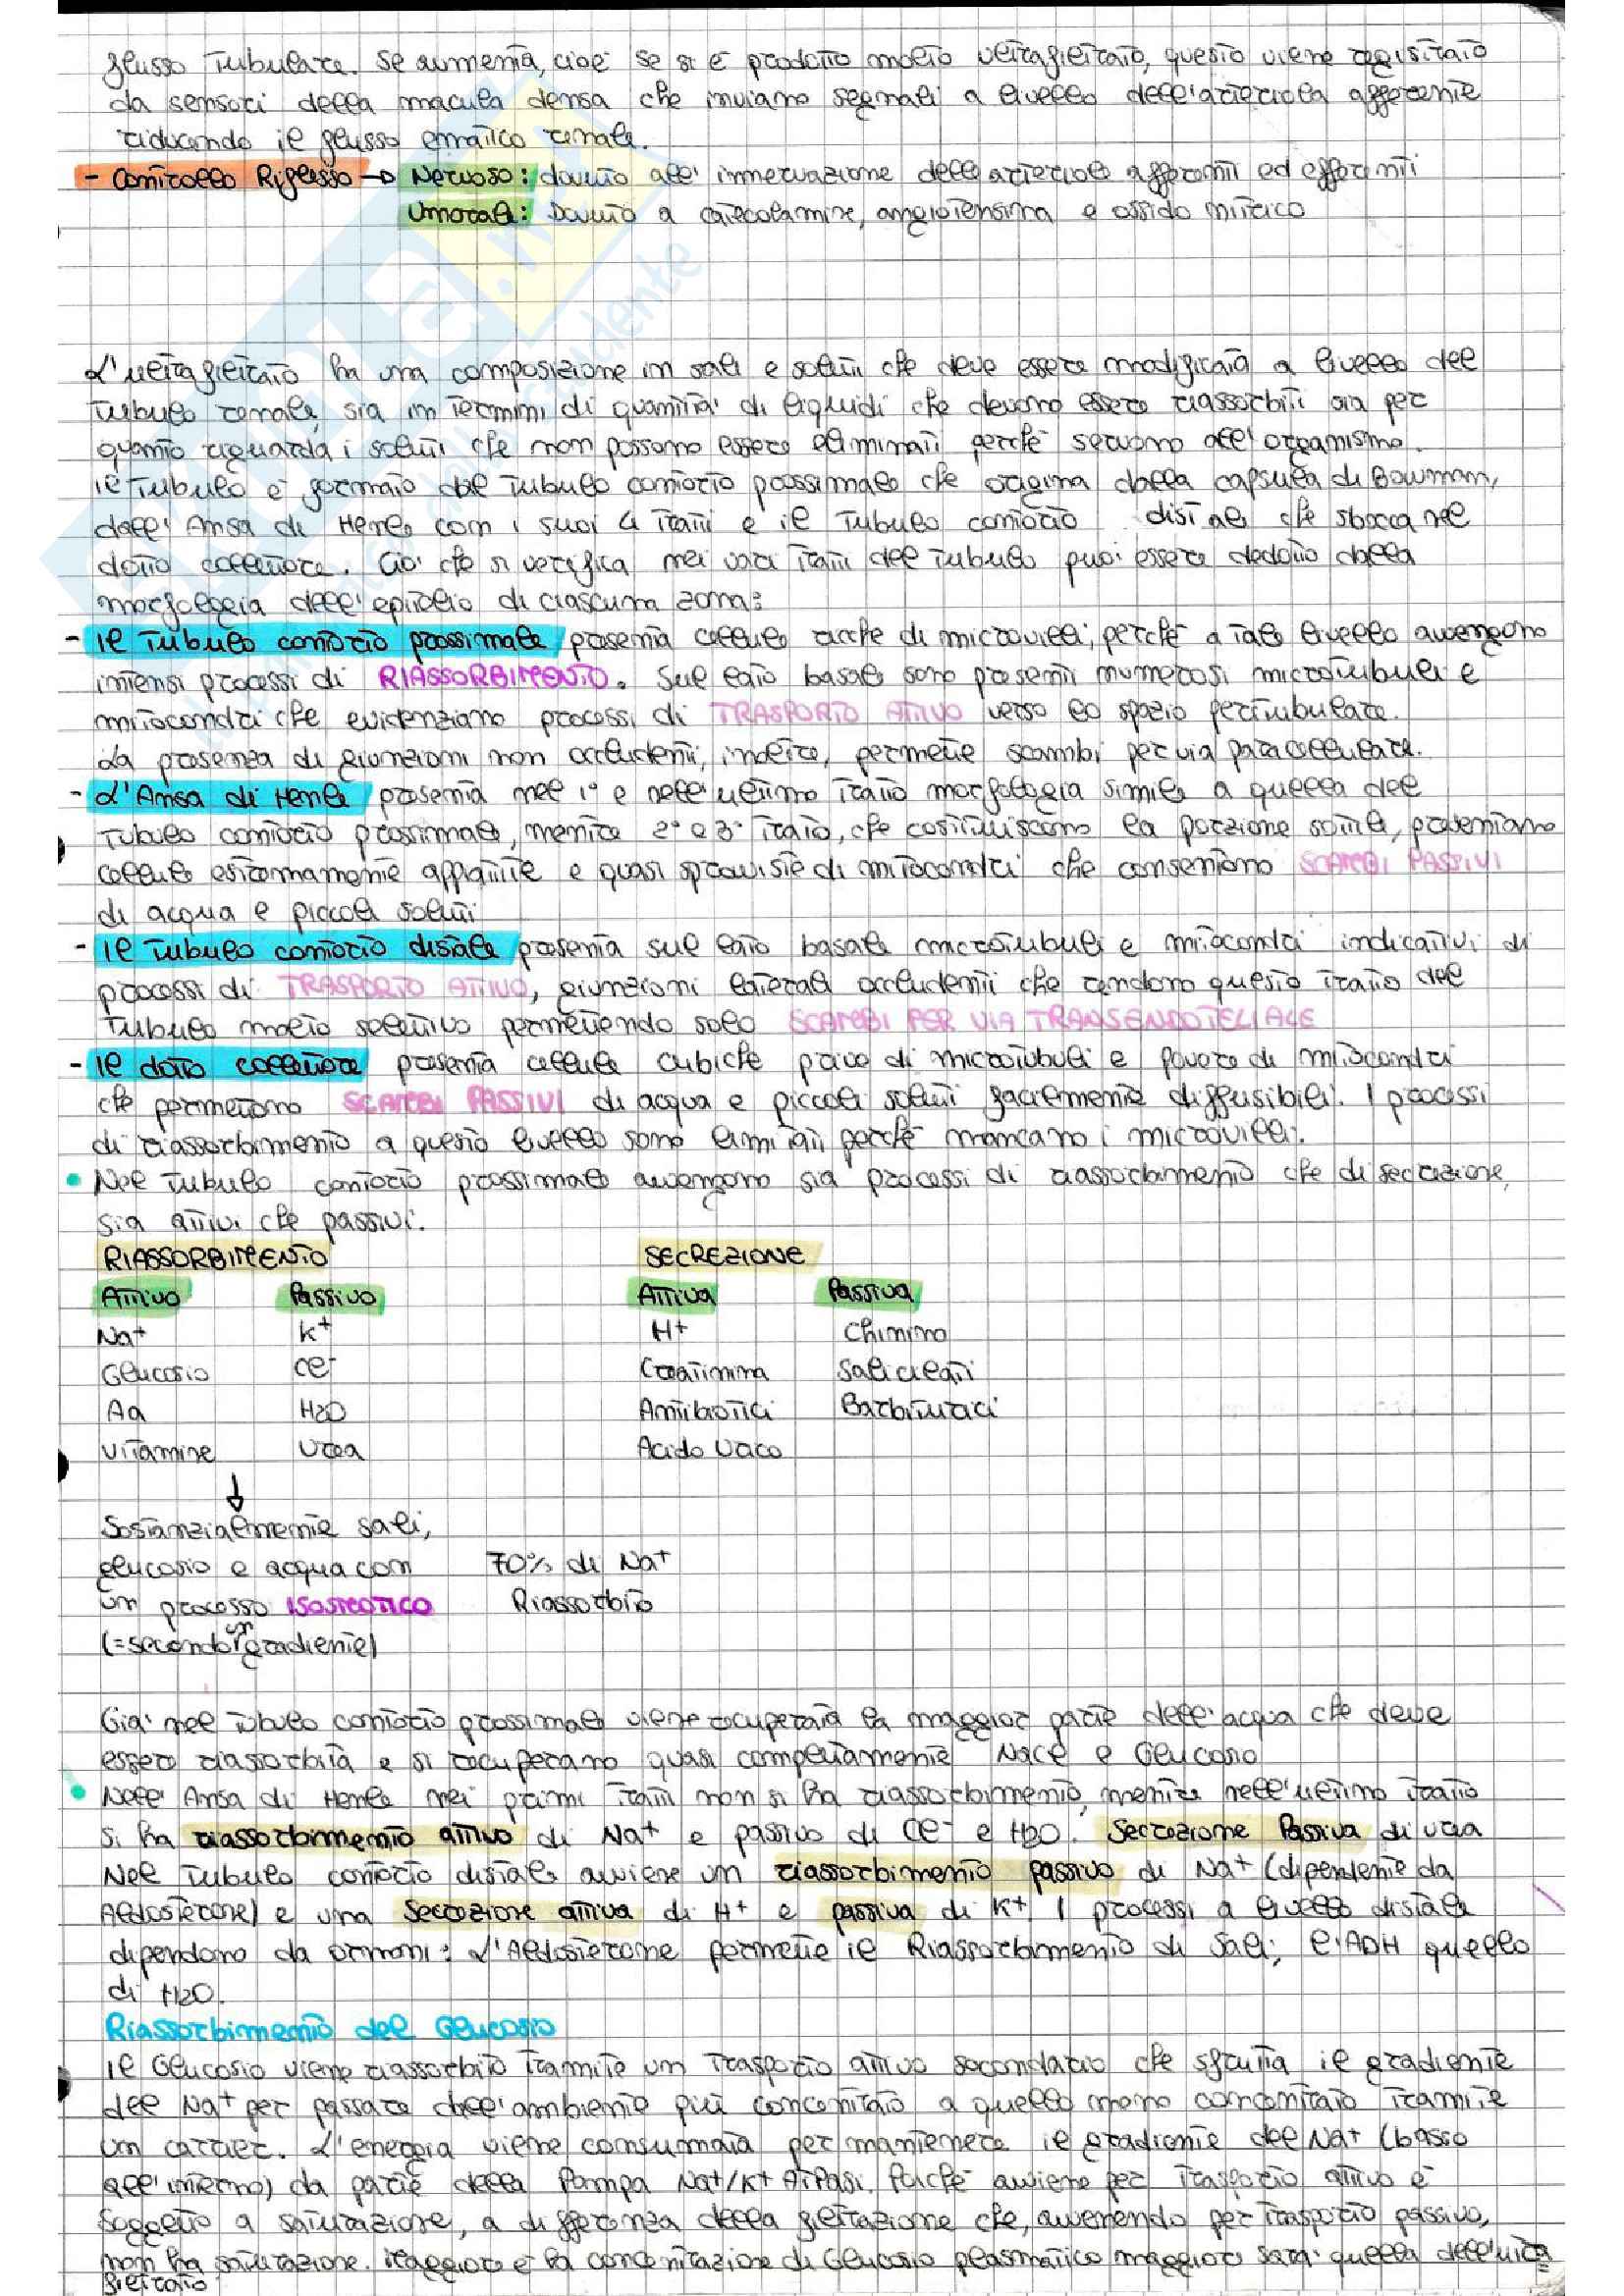 flusso tubulare. Se aumenta, cioè se si è prodotto molto ultrafiltrato, questo viene registrato
da sensori della macula densa che inviano segnali a livello dell'arteriola afferente
riducendo il flusso ematico renale.
- Controllo Riflesso → Nervoso: dovuto all'innervazione delle arteriole afferenti ed efferenti
Umorale: Dovuto a catecolamine, angiotensina e ossido nitrico
L'ultrafiltrato ha una composizione in sali e soluti che deve essere modificata a livello del
tubulo renale, sia in termini di quantità di liquidi che devono essere riassorbiti sia per
quanto riguarda i soluti che non possono essere eliminati perché servono all'organismo.
Il tubulo è formato dal tubulo contorto prossimale che origina dalla capsula di Bowman,
dall'Ansa di Henle con i suoi 4 tratti e il tubulo contorto distale che sbocca nel
dotto collettore. Ciò che si verifica nei vari tratti del tubulo può essere dedotto dalla
morfologia dell'epitelio di ciascuna zona:
- Il tubulo contorto prossimale presenta cellule ricche di microvilli, perché a tale livello avvengono
intensi processi di RIASSORBIMENTO. Sul lato basale sono presenti numerosi microtubuli e
mitocondri che evidenziano processi di TRASPORTO ATTIVO verso lo spazio peritubulare.
La presenza di giunzioni non occludenti, inoltre, permette scambi per via paracellulare.
- L'Ansa di Henle presenta nel 1° e nell'ultimo tratto morfologia simile a quella del
tubulo contorto prossimale, mentre 2° e 3° tratto, che costituiscono la porzione sottile, presentano
cellule estremamente appiattite e quasi sprovviste di mitocondri che consentono SCAMBI PASSIVI
di acqua e piccoli soluti
- Il tubulo contorto distale presenta sul lato basale microtubuli e mitocondri indicativi di
processi di TRASPORTO ATTIVO, giunzioni laterali occludenti che rendono questo tratto del
tubulo molto selettivo permettendo solo SCAMBI PER VIA TRANSENDOTELIALE
- Il dotto collettore presenta cellule cubiche prive di microtubuli e povere di mitocondri
che permettono SCAMBI PASSIVI di acqua e piccoli soluti facilmente diffusibili. I processi
di riassorbimento a questo livello sono limitati perché mancano i microvilli.
• Nel tubulo contorto prossimale avvengono sia processi di riassorbimento che di secrezione,
sia attivi che passivi.
RIASSORBIMENTO SECREZIONE
Attivo Passivo Attiva Passiva
Na+ K+ H+ Chinino
Glucosio Cl- Creatinina Salicilati
Aa H2O Antibiotici Barbiturici
Vitamine Urea Acido Urico
↓
Sostanzialmente sali,
glucosio e acqua con 70% di Na+
un processo ISOSMOTICO Riassorbito
(=secondo un gradiente)
Gia' nel tubulo contorto prossimale viene recuperata la maggior parte dell'acqua che deve
essere riassorbita e si recuperano quasi completamente NaCl e Glucosio
• Nell'Ansa di Henle nei primi tratti non si ha riassorbimento, mentre nell'ultimo tratto
si ha riassorbimento attivo di Na+ e passivo di Cl- e H2O. Secrezione Passiva di urea
Nel tubulo contorto distale avviene un riassorbimento passivo di Na+ (dipendente da
Aldosterone) e una Secrezione attiva di H+ e passiva di K+. I processi a livello distale
dipendono da ormoni: L'Aldosterone permette il Riassorbimento di Sali; l'ADH quello
di H2O.
Riassorbimento del Glucosio
Il Glucosio viene riassorbito tramite un trasporto attivo secondario che sfrutta il gradiente
del Na+ per passare dall'ambiente più concentrato a quello meno concentrato tramite
un carrier. L'energia viene consumata per mantenere il gradiente del Na+ (basso
all'interno) da parte della Pompa Na+/K+ ATPasi. Poiché avviene per trasporto attivo è
Soggetto a saturazione, a differenza della filtrazione che, avvenendo per trasporto passivo,
non ha saturazione. Maggiore è la concentrazione di Glucosio plasmatico maggiore sara' quella dell'ultra
filtrato